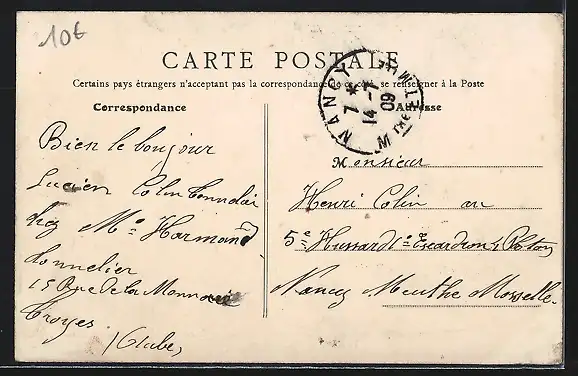 10€
CARTE POSTALE
Certains pays étrangers n'acceptant pas la correspondance de ce côté, se renseigner à la Poste
Correspondance
Adresse
NANCY
7 *
14 - 7
09
Bien le bonjour
Lucien Colin tonnelier
chez Mr Harmand
tonnelier
15 Rue de la Monnaie
Troyes
(Aube)
Monsieur
Henri Colin au
5e Hussard 1e Escadron
Nancy Meurthe Moselle.